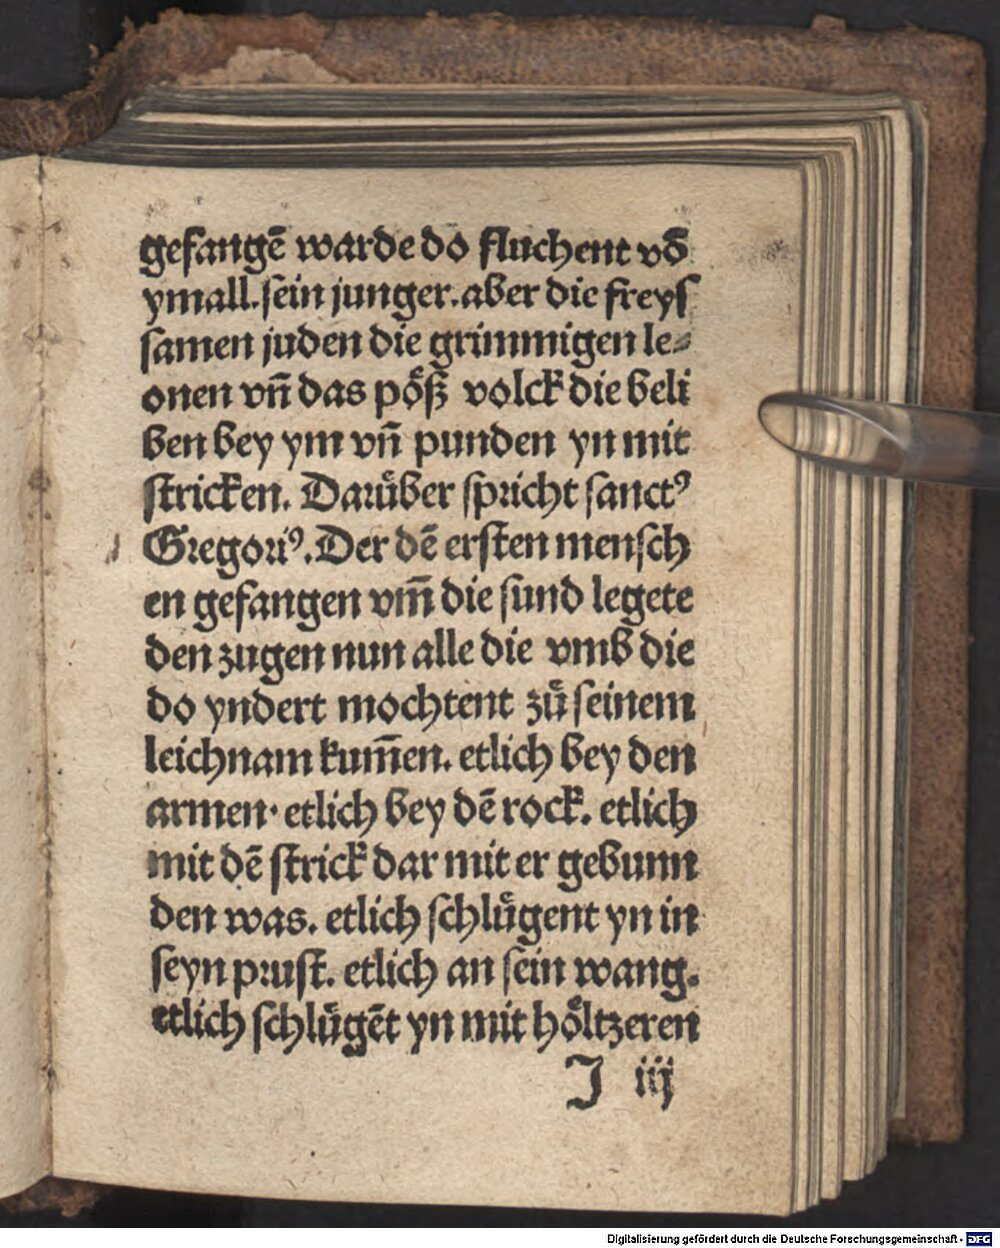 gefangē warde do fluchent vō
ymall. sein junger. aber die freyſ
ſamen juden die grimmigen le⸗
onen vn̄ das poͤß volck die beli
ben bey ym vn̄ punden yn mit
ſtricken. Daruͤber ſpricht ſanctꝰ
Gregoriꝰ. Der dē erſten menſch
en gefangen vm̄ die ſund legete
den zugen nun alle die vmb die
do yndert mochtent zuͤ ſeinem
leichnam kum̄en. etlich bey den
armen· etlich bey dē rock. etlich
mit dē ſtrick dar mit er gebunn
den was. etlich ſchluͤgent yn in
ſeyn pruſt. etlich an ſein wang.
etlich ſchluͤgēt yn mit hoͤltzeren
J iij
Digitalisierung gefördert durch die Deutsche Forschungsgemeinschaft - DFG